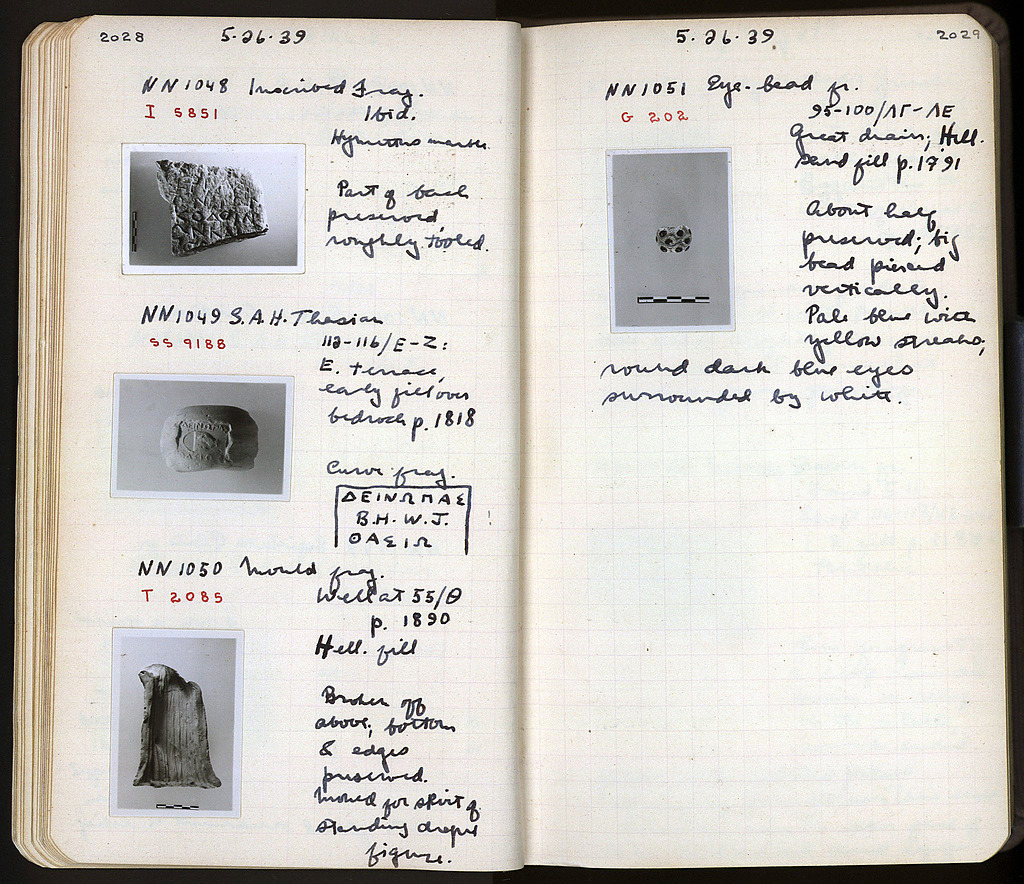 2028 5·26·39
NN1048 Inscribed Frag.
I 5851 Ibid.
Hymettus marble.
Part of back
preserved,
roughly tooled.
NN1049 S.A.H. Thasian
SS 9188 112-116/E-Z:
E. terrace,
early fill over
bedrock p. 1818
Curve frag.
ΔΕΙΝΩΠΑΣ
B.H.W.J.
ΘΑΣΙΩ
NN1050 Mould frag.
T 2085 Well at 55/Θ
p. 1890
Hell. fill
Broken off
above; bottom
& edges
preserved.
Mould for skirt of
standing draped
figure.
5·26·39 2029
NN1051 Eye-bead fr.
G 202 95-100/ΛΓ-ΛΕ
Great drain; Hell.
sand fill p. 1791
About half
preserved; big
bead pierced
vertically.
Pale blue with
yellow streaks;
round dark blue eyes
surrounded by white.